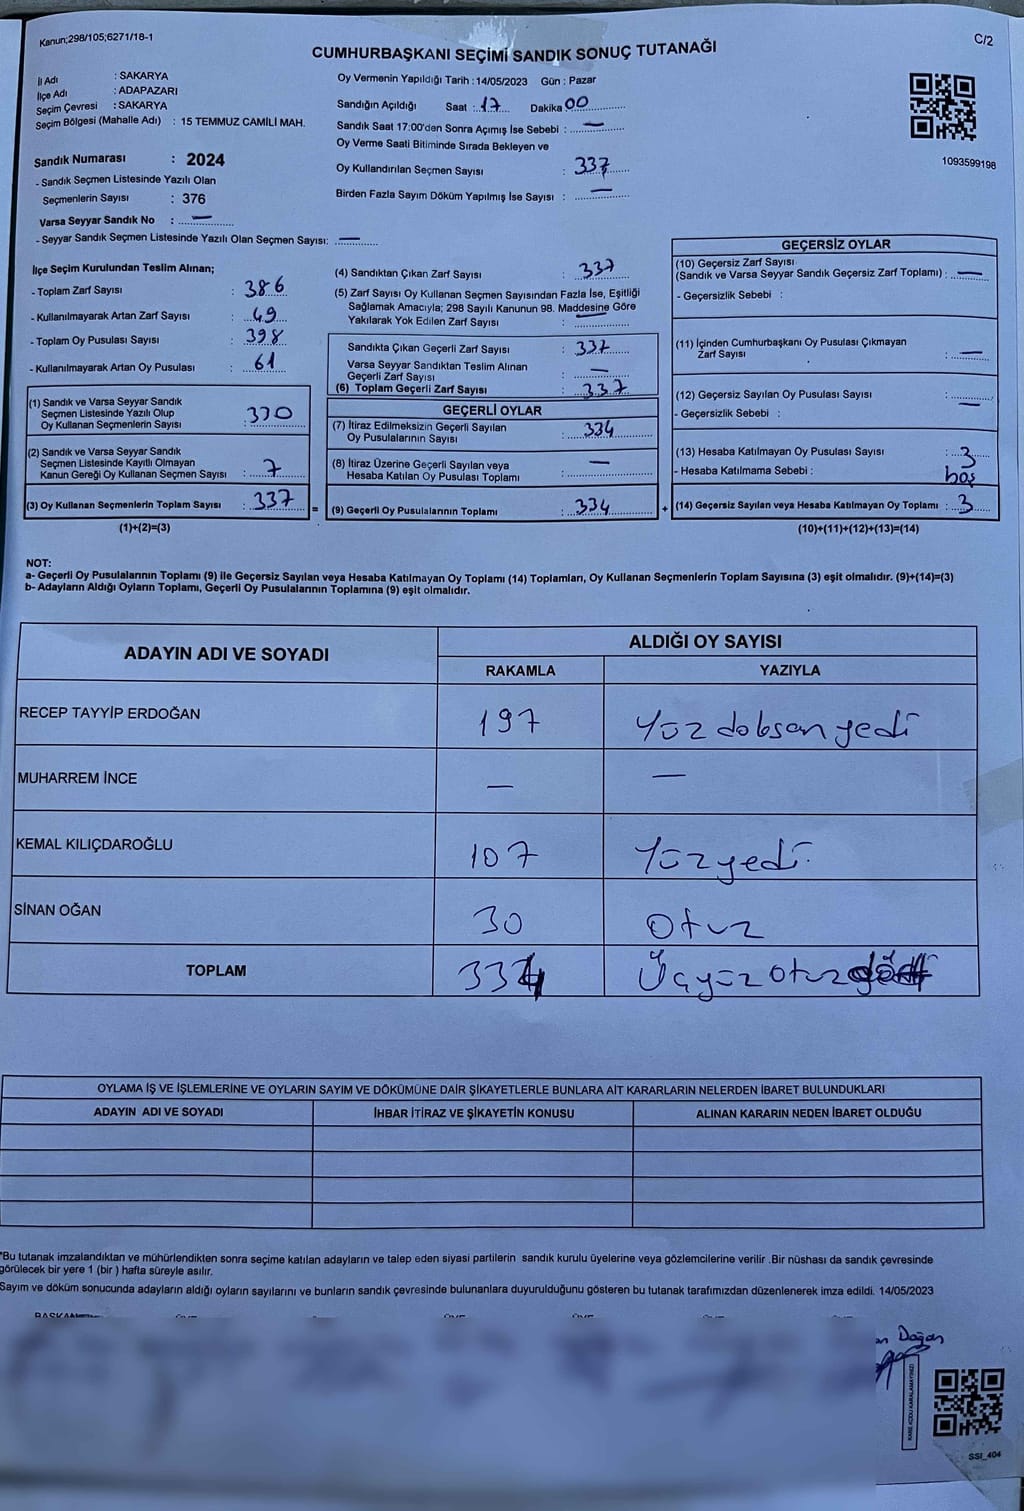 Kanun;298/105;6271/18-1
C/2
CUMHURBAŞKANI SEÇİMİ SANDIK SONUÇ TUTANAĞI
İl Adı : SAKARYA
İlçe Adı : ADAPAZARI
Seçim Çevresi : SAKARYA
Seçim Bölgesi (Mahalle Adı) : 15 TEMMUZ CAMİLİ MAH.
Sandık Numarası : 2024
- Sandık Seçmen Listesinde Yazılı Olan
Seçmenlerin Sayısı : 376
Varsa Seyyar Sandık No : —
- Seyyar Sandık Seçmen Listesinde Yazılı Olan Seçmen Sayısı: —
Oy Vermenin Yapıldığı Tarih : 14/05/2023 Gün : Pazar
Sandığın Açıldığı Saat : 17 Dakika 00
Sandık Saat 17:00'den Sonra Açımış İse Sebebi : —
Oy Verme Saati Bitiminde Sırada Bekleyen ve
Oy Kullandırılan Seçmen Sayısı : 337
Birden Fazla Sayım Döküm Yapılmış İse Sayısı : —
1093599198
İlçe Seçim Kurulundan Teslim Alınan;
- Toplam Zarf Sayısı : 386
- Kullanılmayarak Artan Zarf Sayısı : 49
- Toplam Oy Pusulası Sayısı : 398
- Kullanılmayarak Artan Oy Pusulası : 61
(1) Sandık ve Varsa Seyyar Sandık
Seçmen Listesinde Yazılı Olup
Oy Kullanan Seçmenlerin Sayısı : 330
(2) Sandık ve Varsa Seyyar Sandık
Seçmen Listesinde Kayıtlı Olmayan
Kanun Gereği Oy Kullanan Seçmen Sayısı : 7
(3) Oy Kullanan Seçmenlerin Toplam Sayısı : 337
(1)+(2)=(3)
(4) Sandıktan Çıkan Zarf Sayısı : 337
(5) Zarf Sayısı Oy Kullanan Seçmen Sayısından Fazla İse, Eşitliği
Sağlamak Amacıyla; 298 Sayılı Kanunun 98. Maddesine Göre
Yakılarak Yok Edilen Zarf Sayısı : —
Sandıkta Çıkan Geçerli Zarf Sayısı : 337
Varsa Seyyar Sandıktan Teslim Alınan
Geçerli Zarf Sayısı : —
(6) Toplam Geçerli Zarf Sayısı : 337
GEÇERLİ OYLAR
(7) İtiraz Edilmeksizin Geçerli Sayılan
Oy Pusulalarının Sayısı : 334
(8) İtiraz Üzerine Geçerli Sayılan veya
Hesaba Katılan Oy Pusulası Toplamı : —
= (9) Geçerli Oy Pusulalarının Toplamı : 334
GEÇERSİZ OYLAR
(10) Geçersiz Zarf Sayısı
(Sandık ve Varsa Seyyar Sandık Geçersiz Zarf Toplamı) : —
- Geçersizlik Sebebi :
(11) İçinden Cumhurbaşkanı Oy Pusulası Çıkmayan
Zarf Sayısı : —
(12) Geçersiz Sayılan Oy Pusulası Sayısı : —
- Geçersizlik Sebebi :
(13) Hesaba Katılmayan Oy Pusulası Sayısı : 3
- Hesaba Katılmama Sebebi : boş
+ (14) Geçersiz Sayılan veya Hesaba Katılmayan Oy Toplamı : 3
(10)+(11)+(12)+(13)=(14)
NOT:
a- Geçerli Oy Pusulalarının Toplamı (9) ile Geçersiz Sayılan veya Hesaba Katılmayan Oy Toplamı (14) Toplamları, Oy Kullanan Seçmenlerin Toplam Sayısına (3) eşit olmalıdır. (9)+(14)=(3)
b- Adayların Aldığı Oyların Toplamı, Geçerli Oy Pusulalarının Toplamına (9) eşit olmalıdır.
ADAYIN ADI VE SOYADI ALDIĞI OY SAYISI
RAKAMLA YAZIYLA
RECEP TAYYİP ERDOĞAN 197 Yüz doksan yedi
MUHARREM İNCE — —
KEMAL KILIÇDAROĞLU 107 Yüz yedi
SİNAN OĞAN 30 Otuz
TOPLAM 334 Üçyüz otuz dört
OYLAMA İŞ VE İŞLEMLERİNE VE OYLARIN SAYIM VE DÖKÜMÜNE DAİR ŞİKAYETLERLE BUNLARA AİT KARARLARIN NELERDEN İBARET BULUNDUKLARI
ADAYIN ADI VE SOYADI İHBAR İTİRAZ VE ŞİKAYETİN KONUSU ALINAN KARARIN NEDEN İBARET OLDUĞU
*Bu tutanak imzalandıktan ve mühürlendikten sonra seçime katılan adayların ve talep eden siyasi partilerin sandık kurulu üyelerine veya gözlemcilerine verilir .Bir nüshası da sandık çevresinde
görülecek bir yere 1 (bir ) hafta süreyle asılır.
Sayım ve döküm sonucunda adayların aldığı oyların sayılarını ve bunların sandık çevresinde bulunanlara duyurulduğunu gösteren bu tutanak tarafımızdan düzenlenerek imza edildi. 14/05/2023
BAŞKAN ÜYE ÜYE ÜYE ÜYE ÜYE
Doğan
KARE KODU KARALAMAYINIZ!
SSI_404